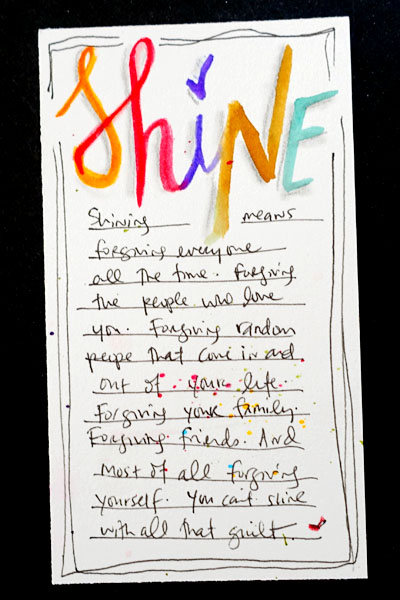 Shine
Shining means
forgiving everyone
all the time. Forgiving
the people who love
you. Forgiving random
people that come in and
out of your life.
Forgiving your family.
Forgiving friends. And
most of all forgiving
yourself. You can't shine
with all that guilt.